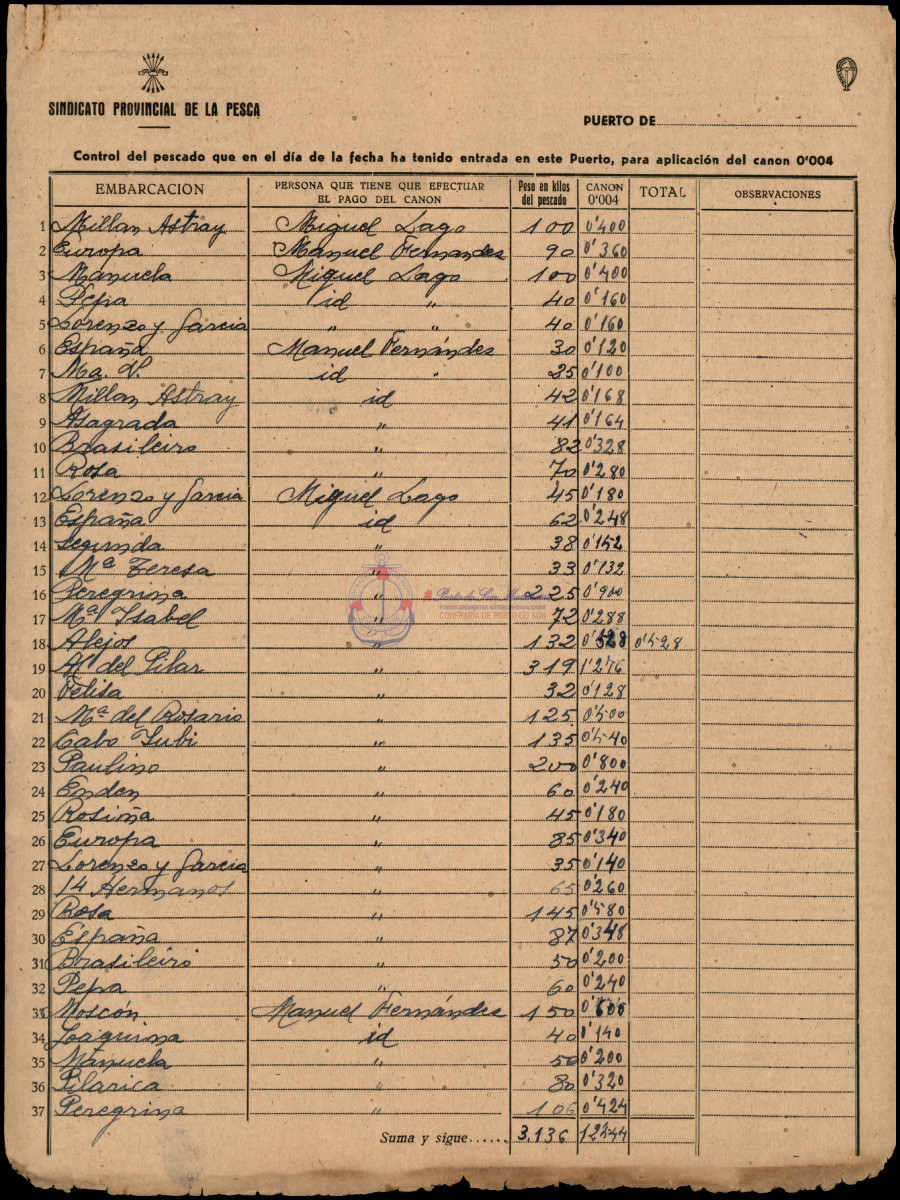 SINDICATO PROVINCIAL DE LA PESCA
PUERTO DE
Control del pescado que en el día de la fecha ha tenido entrada en este Puerto, para aplicación del canon 0'004
EMBARCACION PERSONA QUE TIENE QUE EFECTUAR EL PAGO DEL CANON Peso en kilos del pescado CANON 0'004 TOTAL OBSERVACIONES
1 Millan Astray Miguel Lago 100 0'400
2 Europa Manuel Fernandes 90 0'360
3 Manuela Miguel Lago 100 0'400
4 Pepa id " 40 0'160
5 Lorenzo y Garcia " " 40 0'160
6 España Manuel Fernándes 30 0'120
7 Ma. V. id " 25 0'100
8 Millan Astray id 42 0'168
9 Asagrada " 41 0'164
10 Brasileiro " 82 0'328
11 Rosa " 70 0'280
12 Lorenzo y Garcia Miguel Lago 45 0'180
13 España id 62 0'248
14 Segunda " 38 0'152
15 Mª Teresa " 33 0'132
16 Peregrina " 225 0'900
17 Mª Isabel " 72 0'288
18 Alejos " 132 0'528 0'528
19 Mª del Pilar " 319 1'276
20 Felisa " 32 0'128
21 Mª del Rosario " 125 0'500
22 Cabo Jubi " 135 0'540
23 Paulino " 200 0'800
24 Enden " 60 0'240
25 Rosiña " 45 0'180
26 Europa " 85 0'340
27 Lorenzo y Garcia " 35 0'140
28 14 Hermanos " 65 0'260
29 Rosa " 145 0'580
30 España " 87 0'348
31 Brasileiro " 50 0'200
32 Pepa " 60 0'240
33 Moscón Manuel Fernándes 150 0'600
34 Joaquina id 40 0'140
35 Manuela " 50 0'200
36 Pilarica " 80 0'320
37 Peregrina " 106 0'424
Suma y sigue...... 3.136 12'544
CONFRARIA DE PORTO DO SON